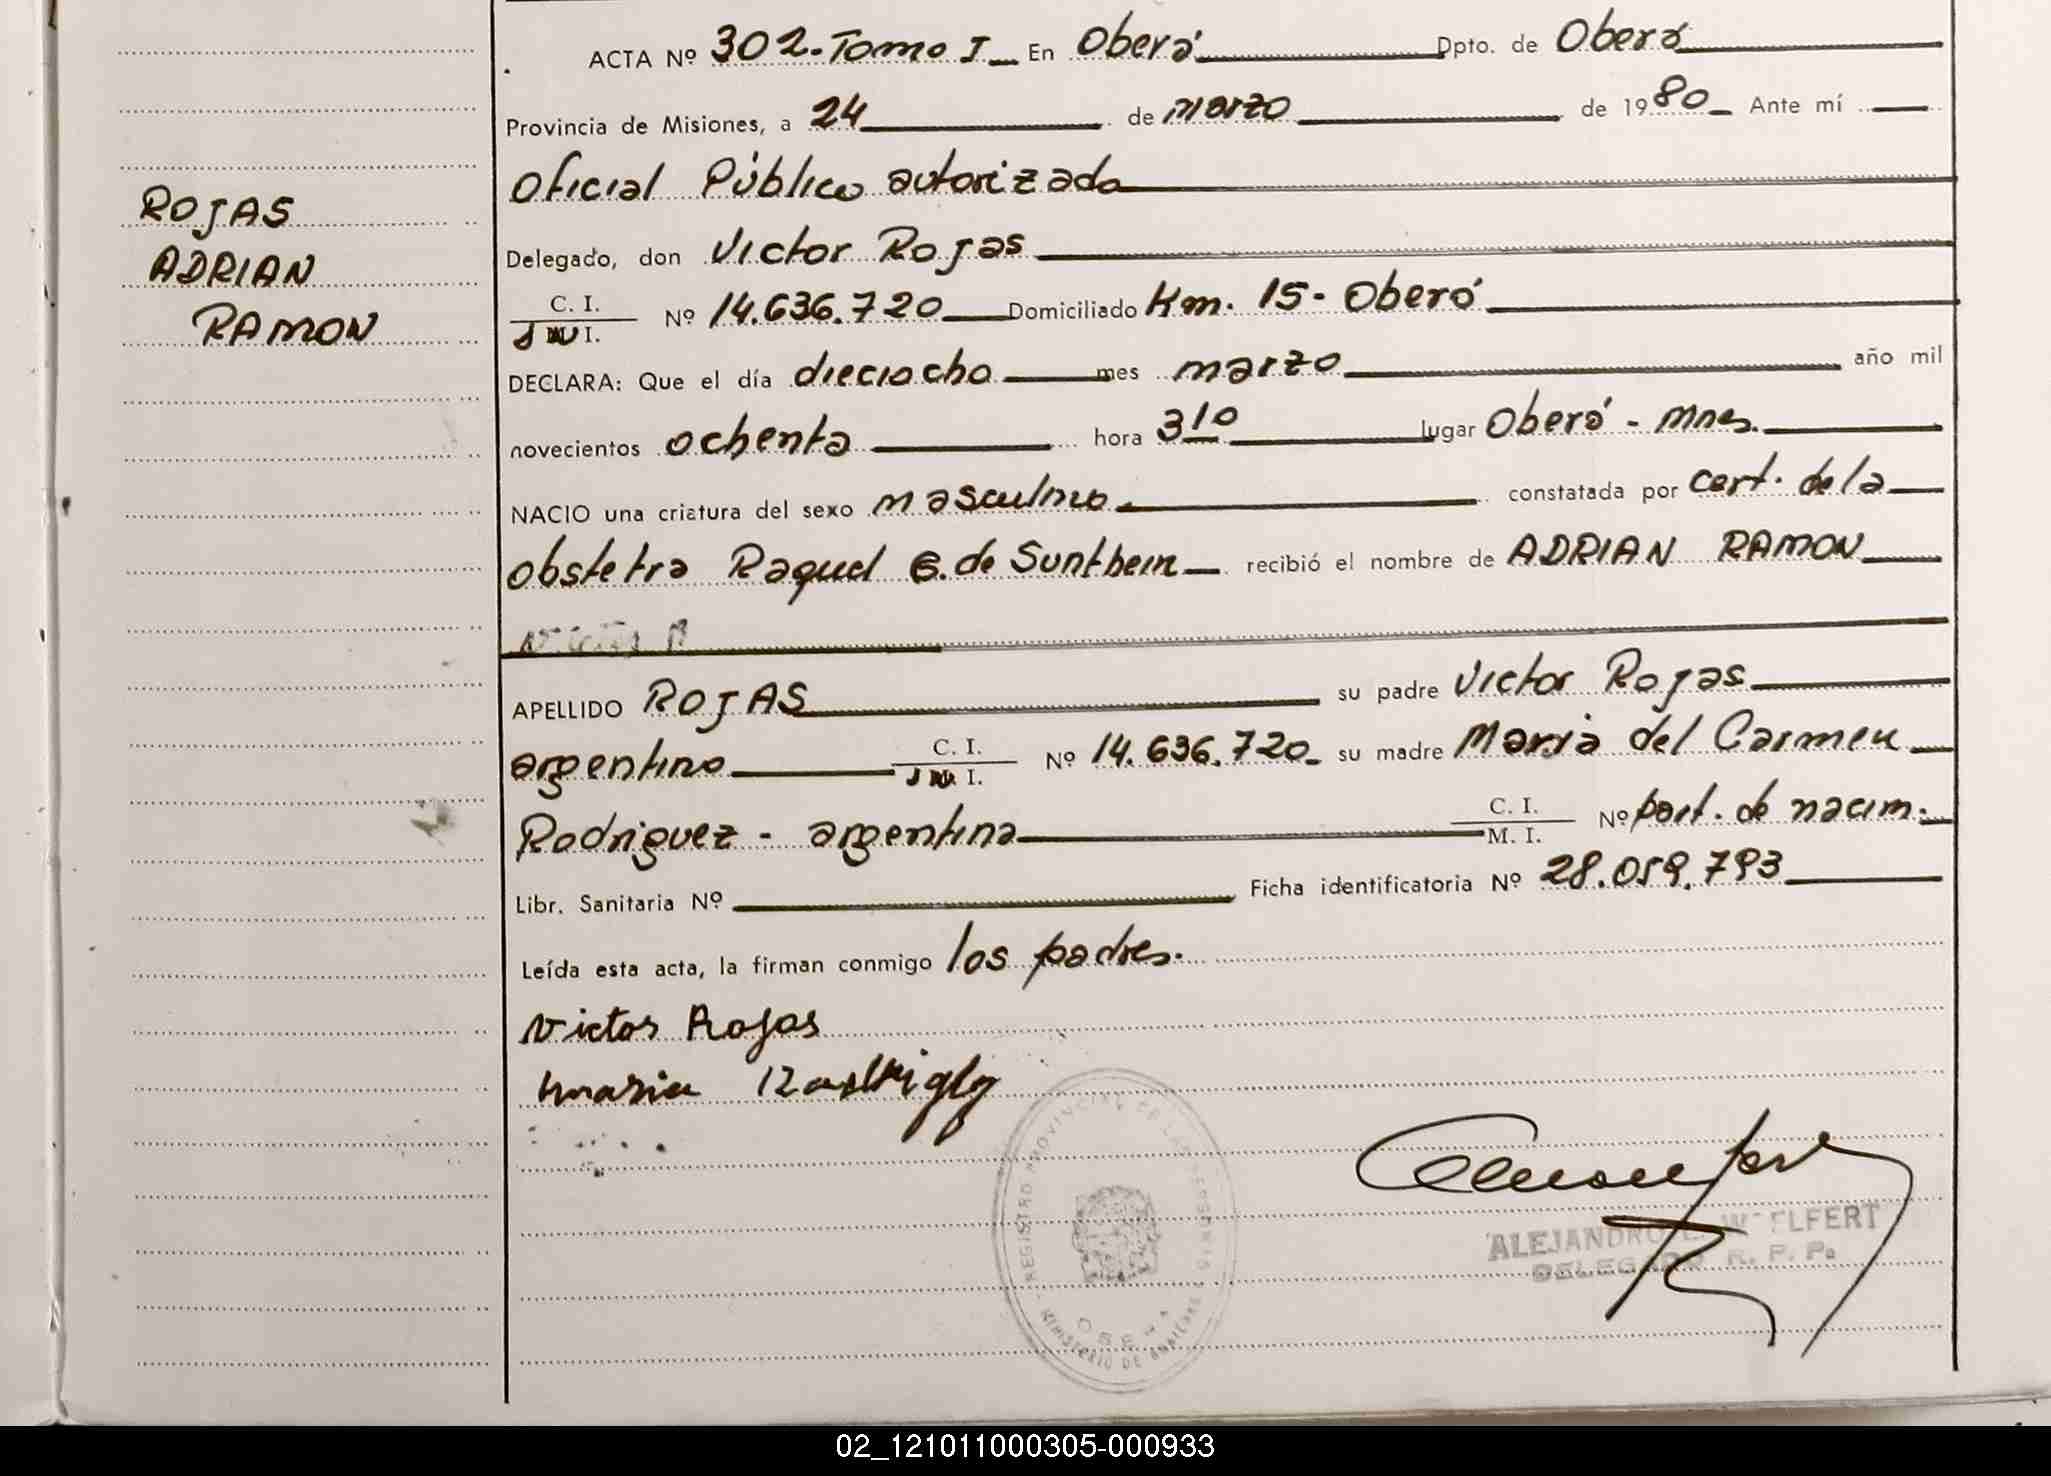 ACTA Nº 302. Tomo I En Oberá Dpto. de Oberá
Provincia de Misiones, a 24 de marzo de 1980 Ante mí
Oficial Público autorizado
ROJAS
Delegado, don Victor Rojas
ADRIAN
C. I. Nº 14.636.720 Domiciliado Km. 15 - Oberá
RAMON
DECLARA: Que el día dieciocho mes marzo año mil
novecientos ochenta hora 3 10 lugar Oberá - Mnes.
NACIO una criatura del sexo masculino constatada por cert. de la
obstetra Raquel G. de Sunthein recibió el nombre de ADRIAN RAMON
APELLIDO ROJAS su padre Victor Rojas
argentino C. I. Nº 14.636.720 su madre Maria del Carmen
Rodriguez - argentina C. I. M. I. Nº part. de nacim.
Libr. Sanitaria Nº Ficha identificatoria Nº 28.059.793
Leída esta acta, la firman conmigo los padres.
Victor Rojas
Maria
REGISTRO PROVINCIAL DE LAS PERSONAS
OBERA
ALEJANDRO
DELEGADO R. P. P.
02_121011000305-000933